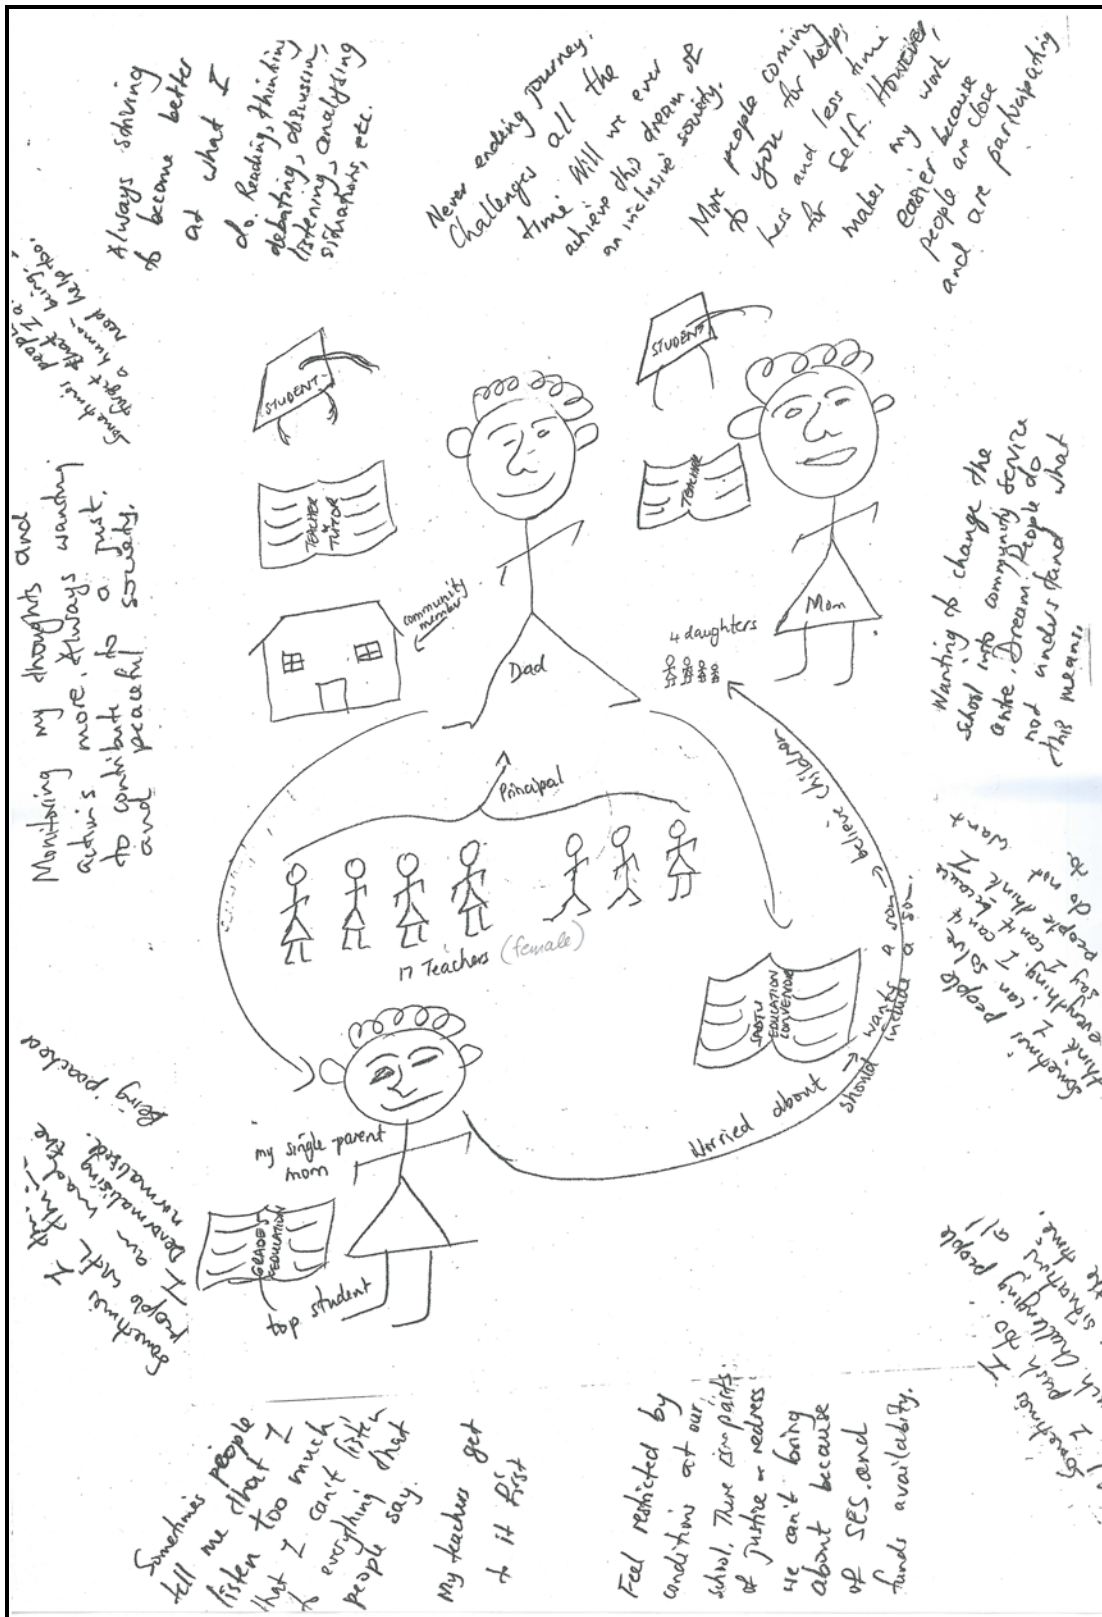 Always striving
to become better
at what I
do. Reading, thinking
debating, discussion,
listening, analysing
situations, etc.
Never ending journey.
Challenges all the
time. Will we ever
achieve this dream of
an inclusive society.
More people coming
to you for help;
less and less time
for self. However,
makes my work
easier because
people are close
and are participating
Sometimes people
forget that I a
a human being.
need help too.
Monitoring my thoughts and
actions more. Always wanting
to contribute to a just,
and peaceful society.
STUDENT
TEACHER
TUTOR
community
member
Dad
STUDENT
TEACHER
Mom
4 daughters
Wanting to change the
school into community service
centre. Dream. People do
not understand what
this means.
Principal
17 Teachers (female)
SADTU
EDUCATION
CONVENOR
Worried about → wants a son → believe children
should include a son
Sometimes people
think I can solve
everything. I can't because
say I can't
people think I
do not want
to.
my single-parent
mom
GRADE 5
EDUCATION
top student
Being poached
Sometimes I
people with
I am made the
Denormalising
normalised.
Sometimes I
I push too
much. Challenging people
situations al
the time.
Sometimes people
tell me that I
listen too much
that I can't listen
to everything that
people say.
My teachers get
to it first
Feel restricted by
conditions at our
school. There are parts
of justice redress
we can't bring
about because
of SES and
funds availability.